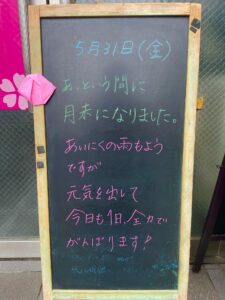 5月31日(金)
あっという間に
月末になりました。
あいにくの雨もよう
ですが
元気を出して
今日も1日、全力で
がんばります!